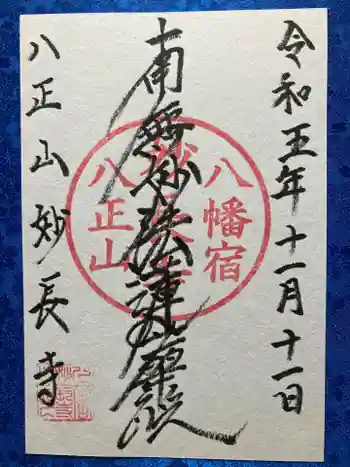 令和五年十一月十一日
南無妙法蓮華経
八正山妙長寺
八幡宿
妙長寺
八正山